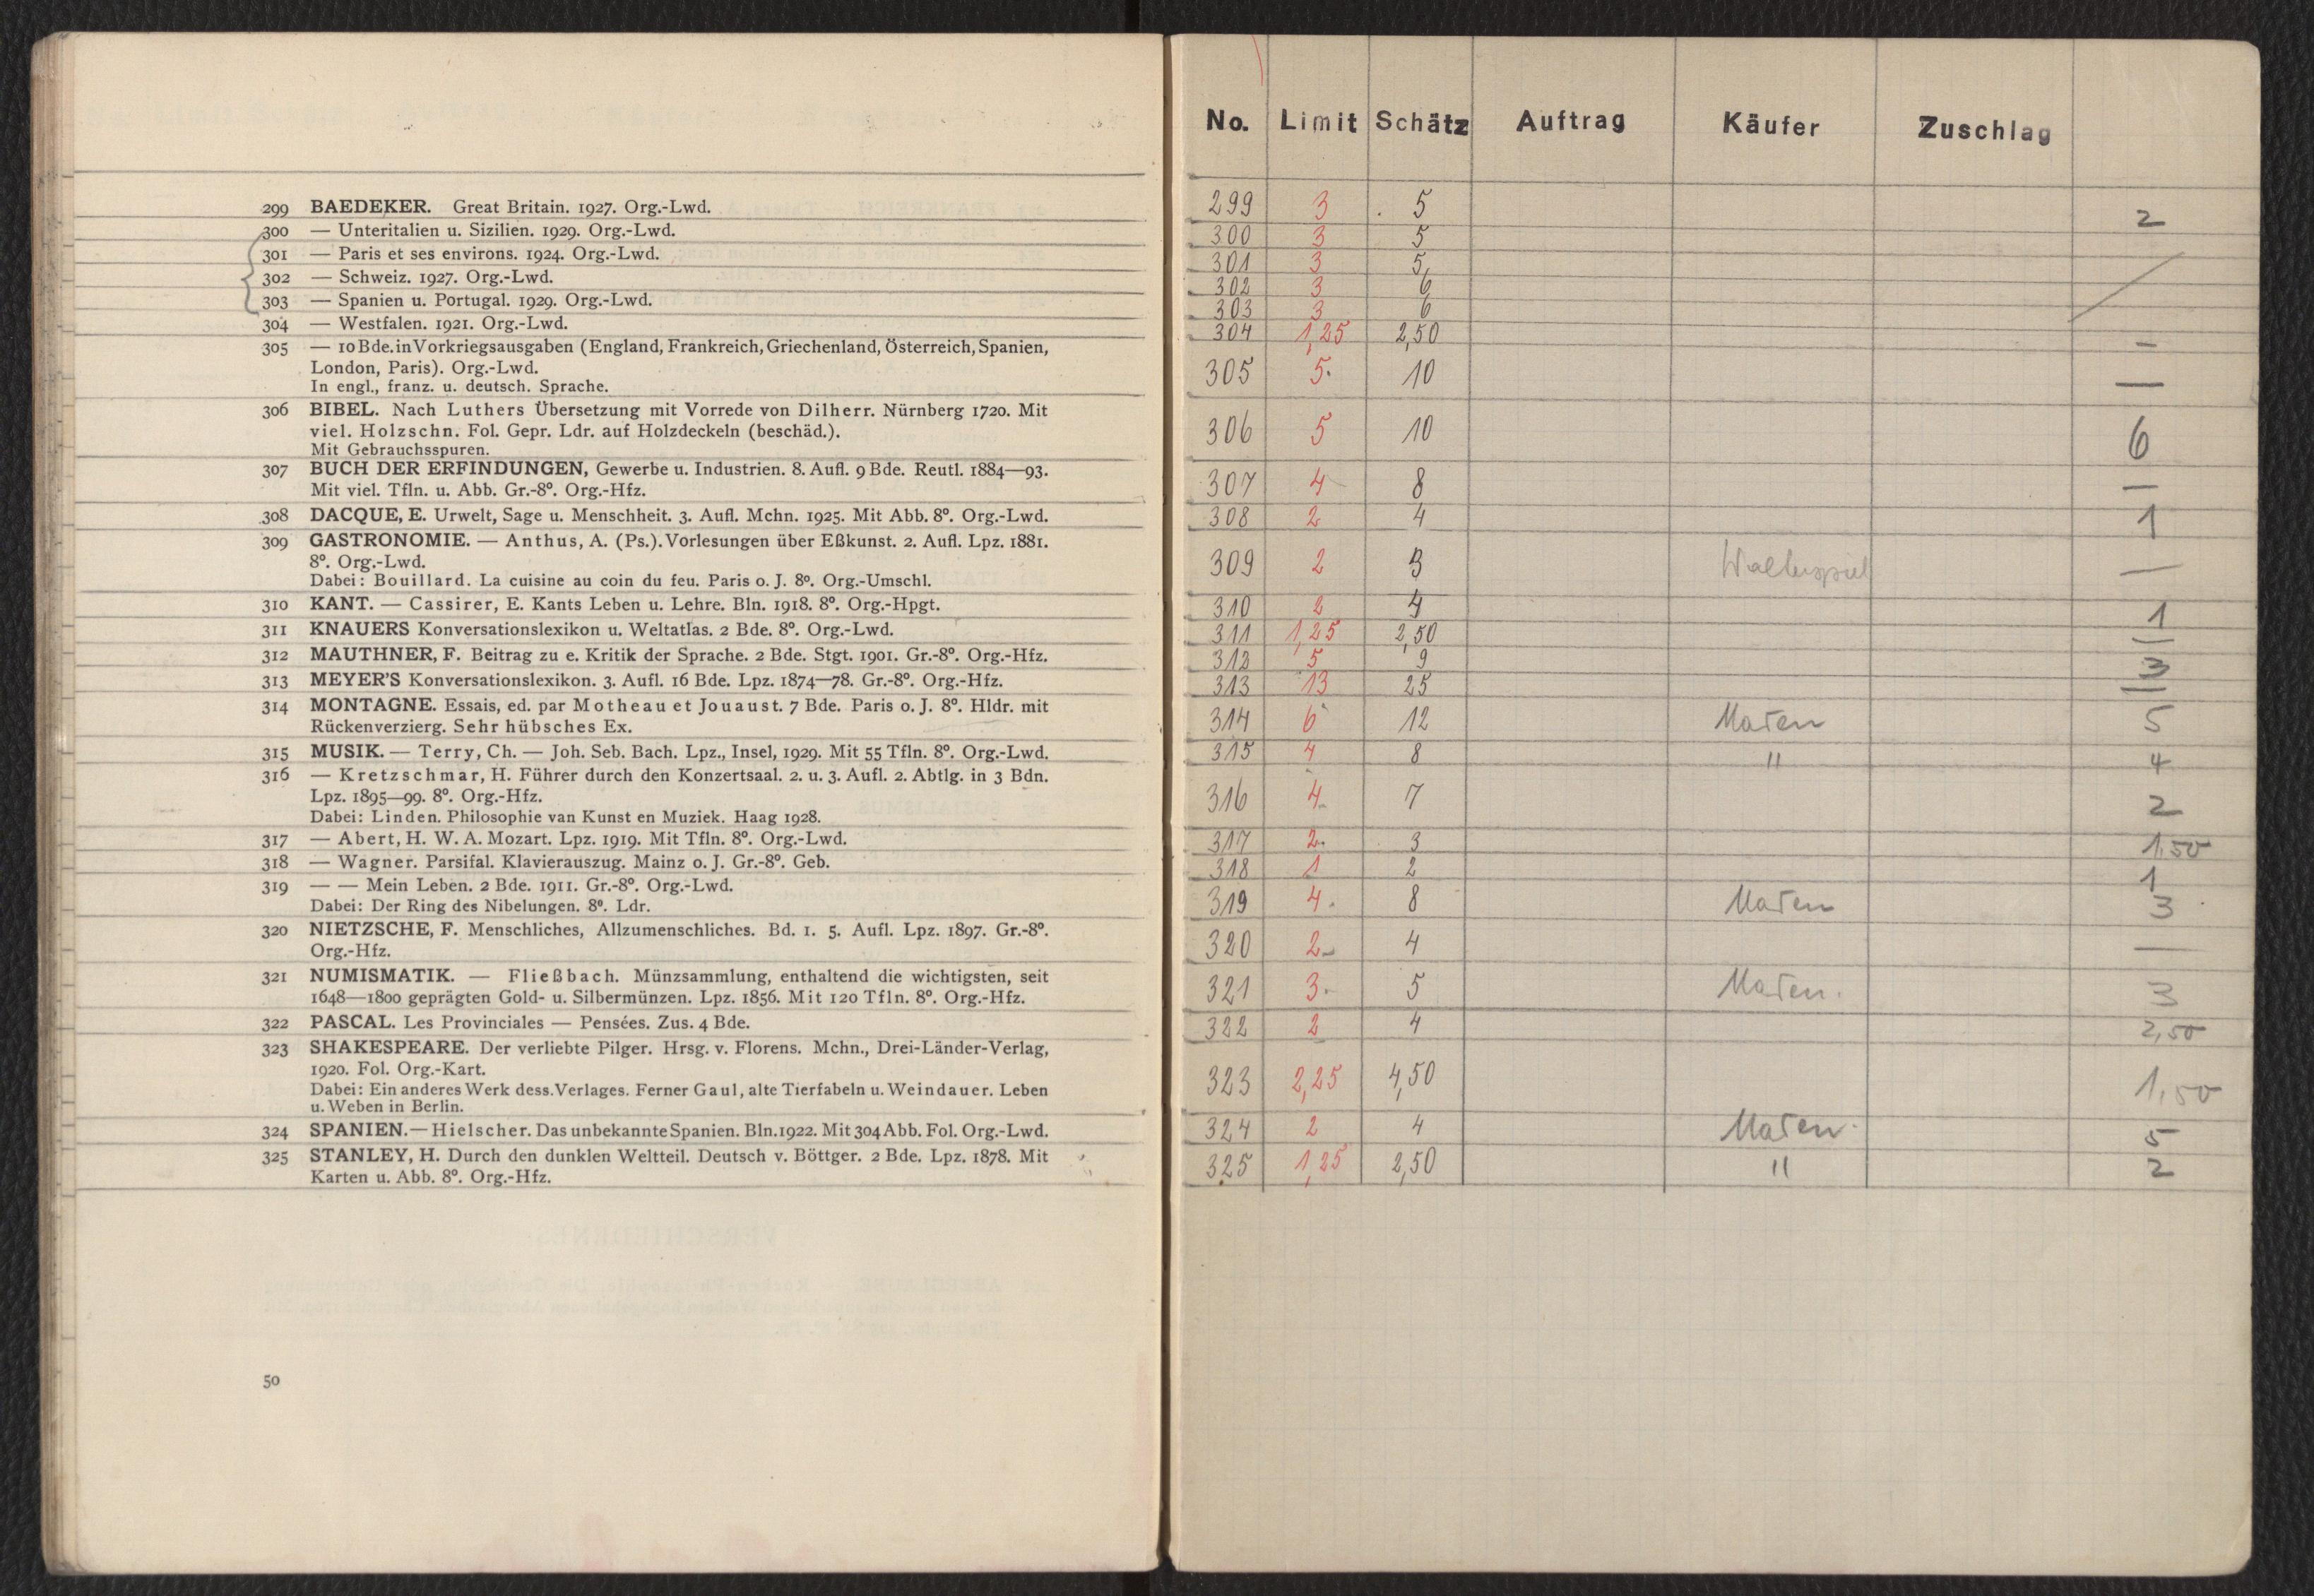 299 BAEDEKER. Great Britain. 1927. Org.-Lwd.
300 — Unteritalien u. Sizilien. 1929. Org.-Lwd.
301 — Paris et ses environs. 1924. Org.-Lwd.
302 — Schweiz. 1927. Org.-Lwd.
303 — Spanien u. Portugal. 1929. Org.-Lwd.
304 — Westfalen. 1921. Org.-Lwd.
305 — 10 Bde. in Vorkriegsausgaben (England, Frankreich, Griechenland, Österreich, Spanien,
London, Paris). Org.-Lwd.
In engl., franz. u. deutsch. Sprache.
306 BIBEL. Nach Luthers Übersetzung mit Vorrede von Dilherr. Nürnberg 1720. Mit
viel. Holzschn. Fol. Gepr. Ldr. auf Holzdeckeln (beschäd.).
Mit Gebrauchsspuren.
307 BUCH DER ERFINDUNGEN, Gewerbe u. Industrien. 8. Aufl. 9 Bde. Reutl. 1884—93.
Mit viel. Tfln. u. Abb. Gr.-8º. Org.-Hfz.
308 DACQUE, E. Urwelt, Sage u. Menschheit. 3. Aufl. Mchn. 1925. Mit Abb. 8º. Org.-Lwd.
309 GASTRONOMIE. — Anthus, A. (Ps.). Vorlesungen über Eßkunst. 2. Aufl. Lpz. 1881.
8º. Org.-Lwd.
Dabei: Bouillard. La cuisine au coin du feu. Paris o. J. 8º. Org.-Umschl.
310 KANT. — Cassirer, E. Kants Leben u. Lehre. Bln. 1918. 8º. Org.-Hpgt.
311 KNAUERS Konversationslexikon u. Weltatlas. 2 Bde. 8º. Org.-Lwd.
312 MAUTHNER, F. Beitrag zu e. Kritik der Sprache. 2 Bde. Stgt. 1901. Gr.-8º. Org.-Hfz.
313 MEYER'S Konversationslexikon. 3. Aufl. 16 Bde. Lpz. 1874—78. Gr.-8º. Org.-Hfz.
314 MONTAGNE. Essais, ed. par Motheau et Jouaust. 7 Bde. Paris o. J. 8º. Hldr. mit
Rückenverzierg. Sehr hübsches Ex.
315 MUSIK. — Terry, Ch. — Joh. Seb. Bach. Lpz., Insel, 1929. Mit 55 Tfln. 8º. Org.-Lwd.
316 — Kretzschmar, H. Führer durch den Konzertsaal. 2. u. 3. Aufl. 2. Abtlg. in 3 Bdn.
Lpz. 1895—99. 8º. Org.-Hfz.
Dabei: Linden. Philosophie van Kunst en Muziek. Haag 1928.
317 — Abert, H. W. A. Mozart. Lpz. 1919. Mit Tfln. 8º. Org.-Lwd.
318 — Wagner. Parsifal. Klavierauszug. Mainz o. J. Gr.-8º. Geb.
319 — — Mein Leben. 2 Bde. 1911. Gr.-8º. Org.-Lwd.
Dabei: Der Ring des Nibelungen. 8º. Ldr.
320 NIETZSCHE, F. Menschliches, Allzumenschliches. Bd. 1. 5. Aufl. Lpz. 1897. Gr.-8º.
Org.-Hfz.
321 NUMISMATIK. — Fließbach. Münzsammlung, enthaltend die wichtigsten, seit
1648—1800 geprägten Gold- u. Silbermünzen. Lpz. 1856. Mit 120 Tfln. 8º. Org.-Hfz.
322 PASCAL. Les Provinciales — Pensées. Zus. 4 Bde.
323 SHAKESPEARE. Der verliebte Pilger. Hrsg. v. Florens. Mchn., Drei-Länder-Verlag,
1920. Fol. Org.-Kart.
Dabei: Ein anderes Werk dess. Verlages. Ferner Gaul, alte Tierfabeln u. Weindauer. Leben
u. Weben in Berlin.
324 SPANIEN. — Hielscher. Das unbekannte Spanien. Bln. 1922. Mit 304 Abb. Fol. Org.-Lwd.
325 STANLEY, H. Durch den dunklen Weltteil. Deutsch v. Böttger. 2 Bde. Lpz. 1878. Mit
Karten u. Abb. 8º. Org.-Hfz.
50
No. Limit Schätz Auftrag Käufer Zuschlag
299 3 5 2
300 3 5
301 3 5
302 3 6
303 3 6
304 1,25 2,50 —
305 5 10 —
306 5 10 6
307 4 8 —
308 2 4 1
309 2 3 —
310 2 4 1
311 1,25 2,50 —
312 5 9 3
313 13 25 —
314 6 12 Maten 5
315 4 8 " 4
316 4 7 2
317 2 3 1,50
318 1 2 1
319 4 8 Maten 3
320 2 4 —
321 3 5 Maten 3
322 2 4 2,50
323 2,25 4,50 1,50
324 2 4 Maten 5
325 1,25 2,50 " 2